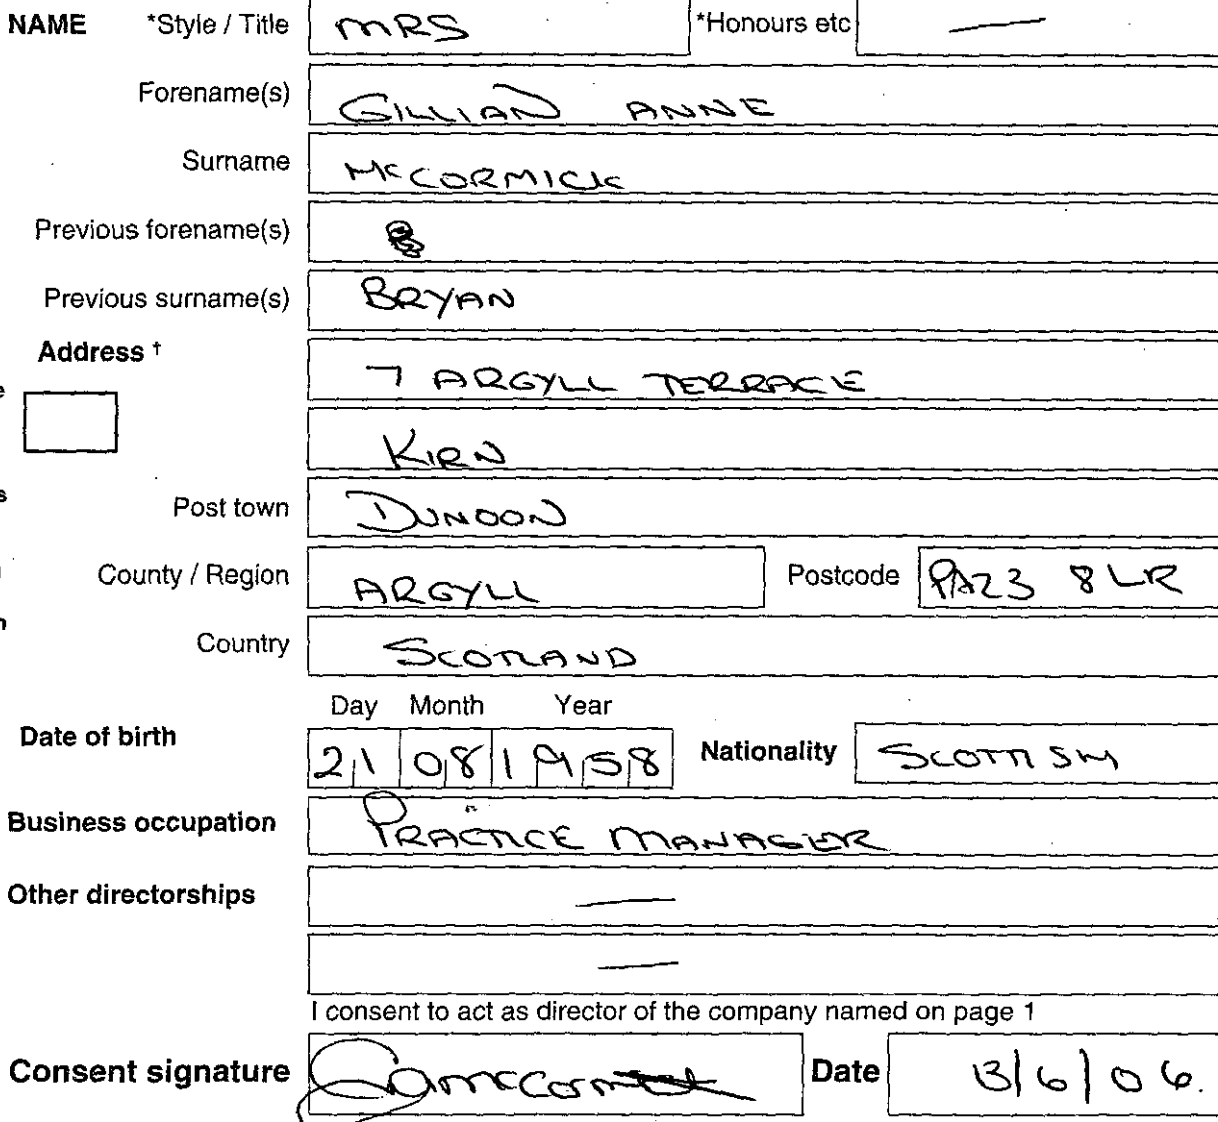 NAME *Style / Title MRS *Honours etc —
Forename(s) GILLIAN ANNE
Surname McCORMICK
Previous forename(s)
Previous surname(s) BRYAN
Address †
7 ARGYLL TERRACE
KIRN
Post town DUNOON
County / Region ARGYLL Postcode PA23 8LR
Country SCOTLAND
Day Month Year
Date of birth 21 08 1958 Nationality SCOTTISH
Business occupation PRACTICE MANAGER
Other directorships —
—
I consent to act as director of the company named on page 1
Consent signature GAMcCormick Date 13/6/06.